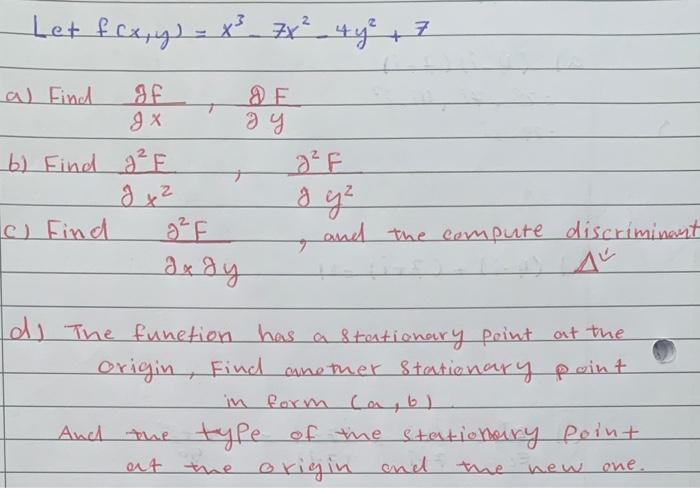 Let f(x,y) = x³ - 7x² - 4y² + 7
a) Find ∂f/∂x , ∂F/∂y
b) Find ∂²F/∂x² , ∂²F/∂y²
c) Find ∂²F/∂x∂y , and the compute discriminant
Δ
d) The function has a stationary point at the
origin, Find another stationary point
in form (a,b)
And the type of the stationary point
at the origin and the new one.